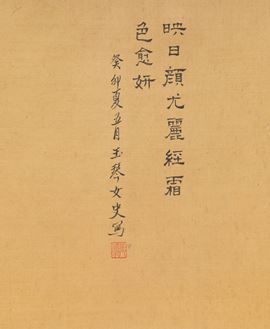 映日顔尤麗經霜
色愈妍
癸卯夏五月玉琴女史寫